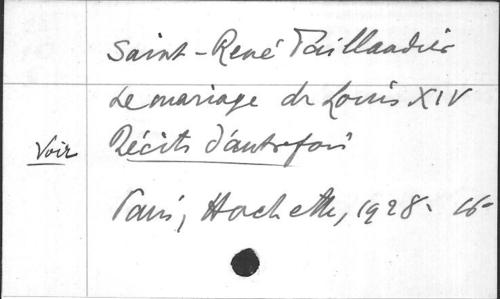 Saint-René Taillandier
Le mariage de Louis XIV
Voir Récits d'autrefois
Paris, Hachette, 1928. 16°